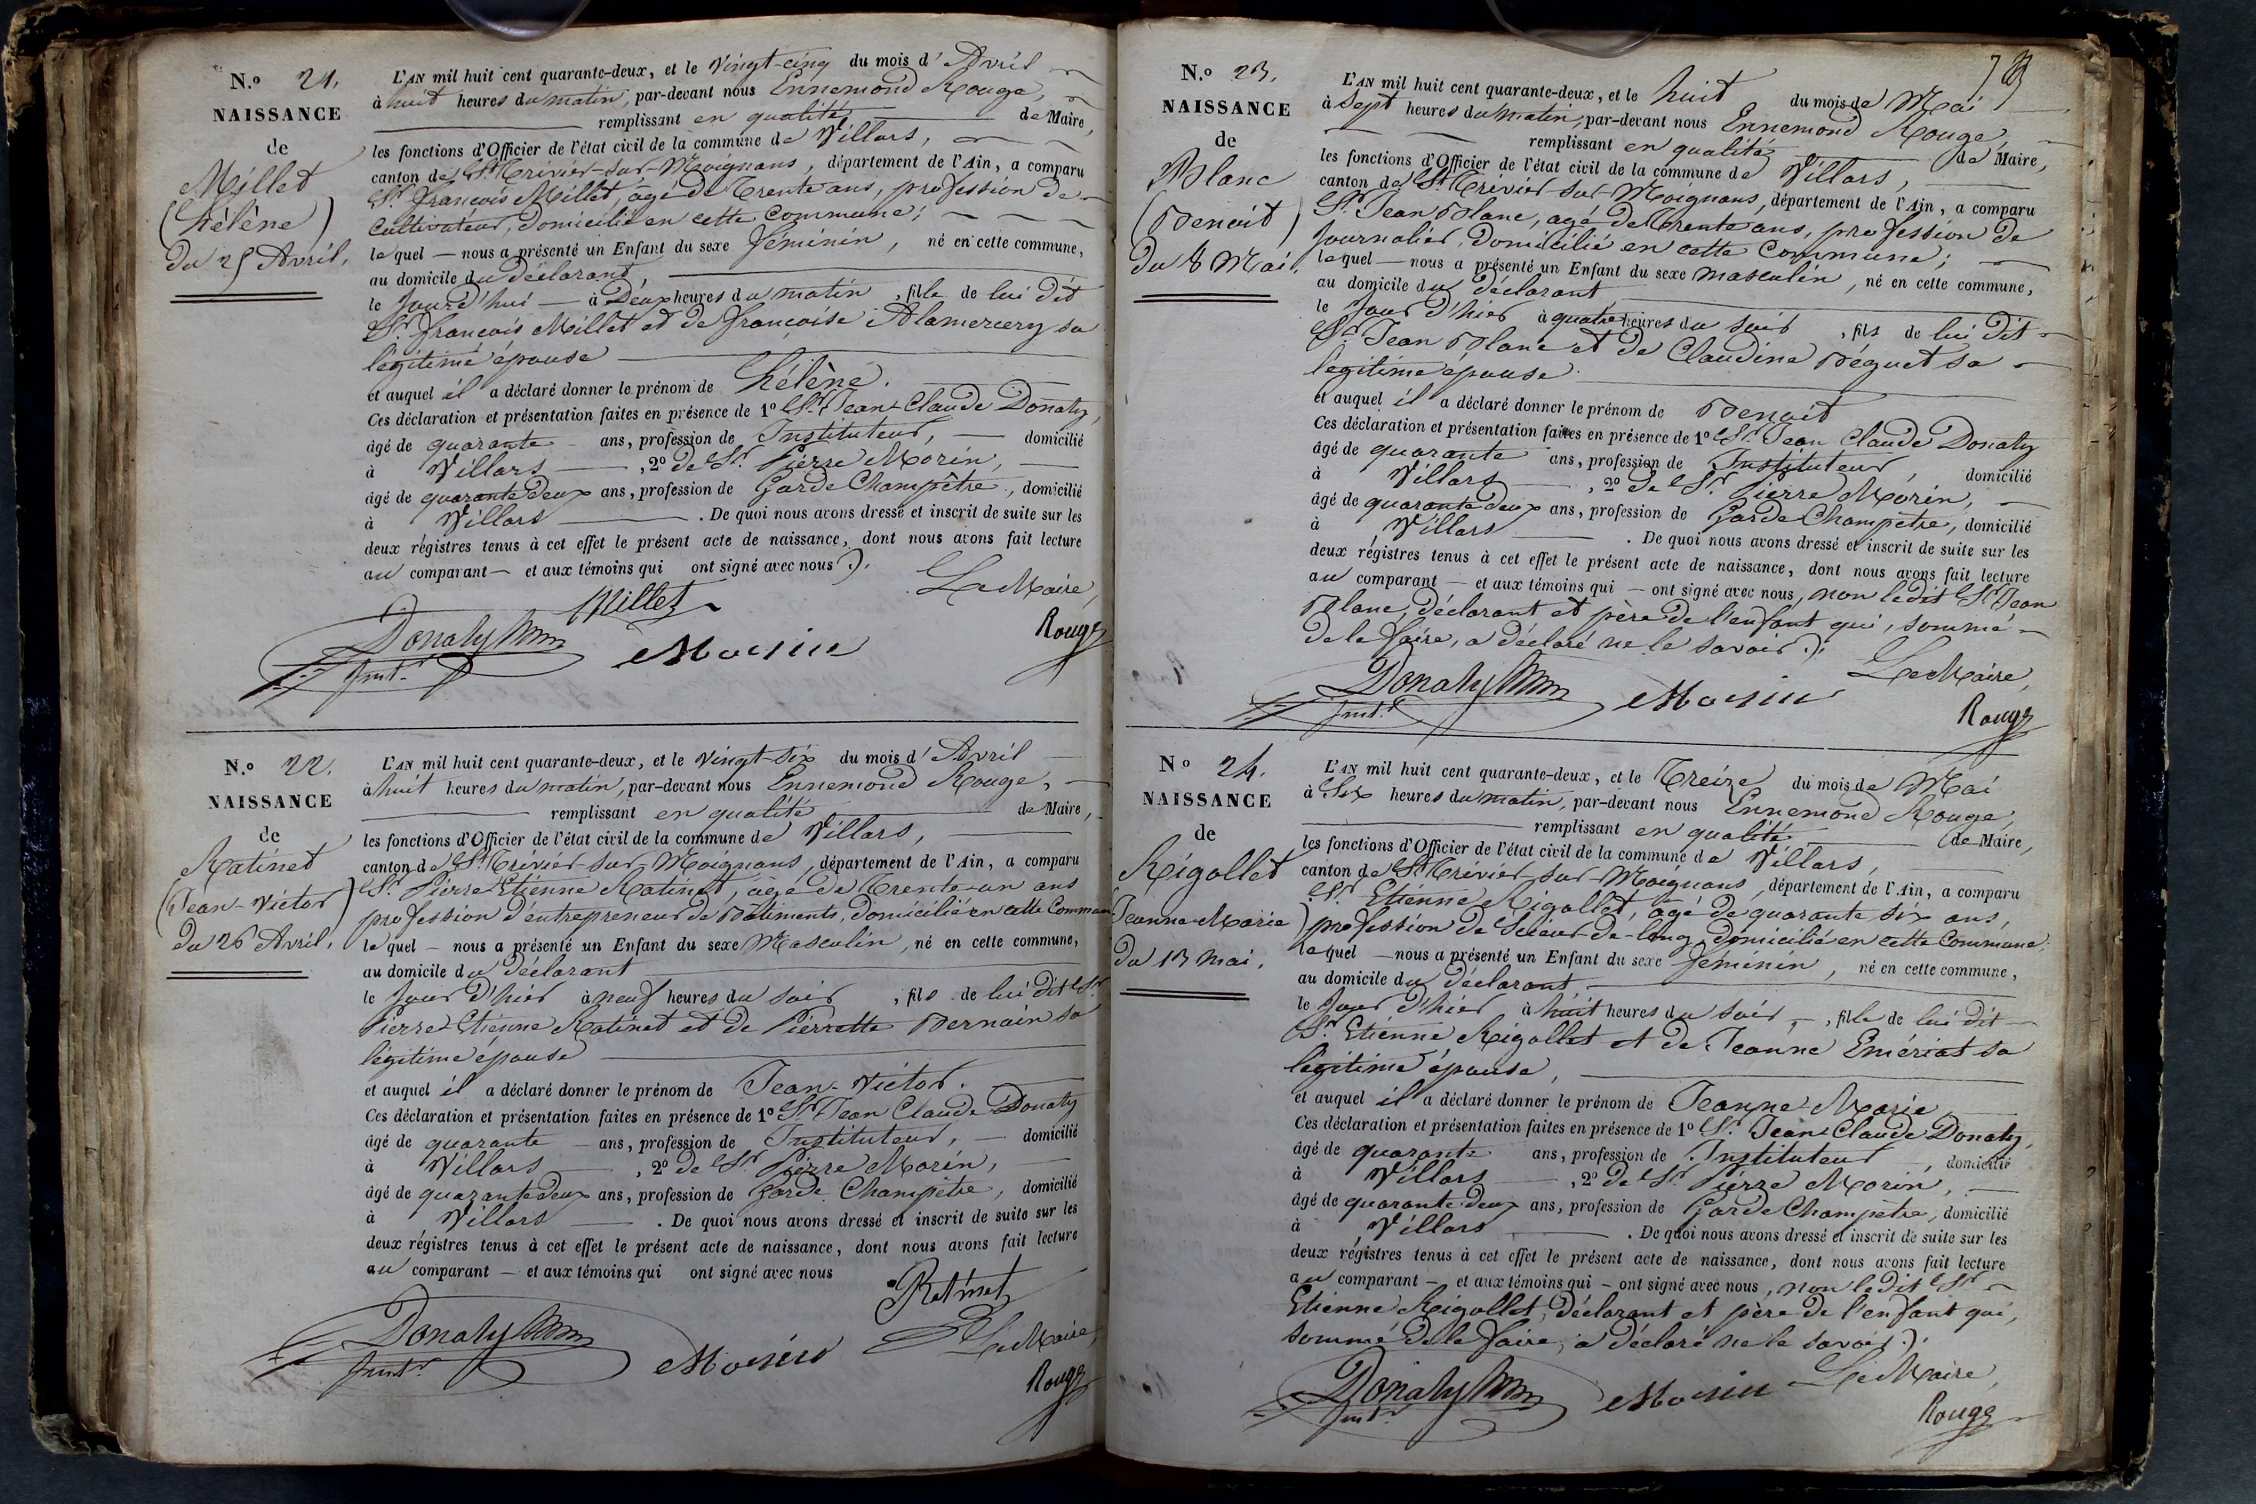 N.º 21.
NAISSANCE
de
Millet
(Hélène)
du 25 Avril.
L'AN mil huit cent quarante-deux, et le Vingt-cinq du mois d'Avril
à huit heures du matin, par-devant nous Ennemond Rouge,
remplissant en qualité de Maire,
les fonctions d'Officier de l'état civil de la commune de Villars,
canton de St Trivier-sur-Moignans, département de l'Ain, a comparu
Sr. François Millet, âgé de Trente ans, profession de
Cultivateur, domicilié en cette Commune;
lequel — nous a présenté un Enfant du sexe féminin, né en cette commune,
au domicile du déclarant,
le Jourd'hui — à Deux heures du matin, fille de lui dit
Sr. François Millet et de françoise Alamercery sa
légitime épouse
et auquel il a déclaré donner le prénom de Hélène.
Ces déclaration et présentation faites en présence de 1º Sr. Jean-Claude Donaty,
âgé de quarante ans, profession de Instituteur, — domicilié
à Villars —, 2º de Sr. Pierre Morin,
âgé de quarante deux ans, profession de Garde Champêtre, domicilié
à Villars — . De quoi nous avons dressé et inscrit de suite sur les
deux régistres tenus à cet effet le présent acte de naissance, dont nous avons fait lecture
au comparant — et aux témoins qui ont signé avec nous).
Millet
Le Maire,
Donaty
Instr.
Morin
Rouge
N.º 22.
NAISSANCE
de
Ratinet
(Jean-Victor)
du 26 Avril.
L'AN mil huit cent quarante-deux, et le vingt-six du mois d'Avril
à huit heures du matin, par-devant nous Ennemond Rouge,
remplissant en qualité de Maire,
les fonctions d'Officier de l'état civil de la commune de Villars,
canton de St Trivier-sur-Moignans, département de l'Ain, a comparu
Sr. Pierre Etienne Ratinet, âgé de Trente-un ans
profession d'entrepreneur de Bâtiments, domicilié en cette Commune
lequel — nous a présenté un Enfant du sexe Masculin, né en cette commune,
au domicile du déclarant
le Jour d'hier à neuf heures du soir, fils de lui dit Sr.
Pierre-Etienne Ratinet et de Pierrette Bernain sa
légitime épouse
et auquel il a déclaré donner le prénom de Jean-Victor.
Ces déclaration et présentation faites en présence de 1º Sr. Jean Claude Donaty
âgé de quarante — ans, profession de Instituteur, — domicilié
à Villars —, 2º de Sr. Pierre Morin,
âgé de quarante deux ans, profession de Garde Champêtre, domicilié
à Villars — . De quoi nous avons dressé et inscrit de suite sur les
deux régistres tenus à cet effet le présent acte de naissance, dont nous avons fait lecture
au comparant — et aux témoins qui ont signé avec nous
Ratinet
Donaty
Instr.
Morin
Le Maire,
Rouge
N.º 23.
NAISSANCE
de
Blanc
(Benoit)
du 8 Mai.
L'AN mil huit cent quarante-deux, et le huit du mois de Mai
à Sept heures du matin, par-devant nous Ennemond Rouge,
remplissant en qualité de Maire,
les fonctions d'Officier de l'état civil de la commune de Villars,
canton de St Trivier-sur-Moignans, département de l'Ain, a comparu
Sr. Jean Blanc, âgé de Trente ans, profession de
Journalier, domicilié en cette Commune;
lequel — nous a présenté un Enfant du sexe masculin, né en cette commune,
au domicile du déclarant
le Jour d'hier à quatre heures du soir, fils de lui dit
Sr. Jean Blanc et de Claudine Béguet sa
légitime épouse
et auquel il a déclaré donner le prénom de Benoit
Ces déclaration et présentation faites en présence de 1º Sr. Jean Claude Donaty
âgé de quarante ans, profession de Instituteur, domicilié
à Villars —, 2º de Sr. Pierre Morin,
âgé de quarante deux ans, profession de Garde Champêtre, domicilié
à Villars — . De quoi nous avons dressé et inscrit de suite sur les
deux régistres tenus à cet effet le présent acte de naissance, dont nous avons fait lecture
au comparant — et aux témoins qui — ont signé avec nous, non ledit Sr. Jean
Blanc, déclarant et père de l'enfant qui, sommé
de le faire, a déclaré ne le savoir).
Le Maire,
Donaty
Instr.
Morin
Rouge
Nº 24.
NAISSANCE
de
Rigollet
(Jeanne-Marie)
du 13 mai.
L'AN mil huit cent quarante-deux, et le Treize du mois de Mai
à Six heures du matin, par-devant nous Ennemond Rouge,
remplissant en qualité de Maire,
les fonctions d'Officier de l'état civil de la commune de Villars,
canton de St Trivier-sur-Moignans, département de l'Ain, a comparu
Sr. Etienne Rigollet, âgé de quarante six ans,
profession de Scieur-de-long, domicilié en cette Commune
lequel — nous a présenté un Enfant du sexe féminin, né en cette commune,
au domicile du déclarant
le Jour d'hier à huit heures du soir, fille de lui dit
Sr. Etienne Rigollet et de Jeanne Emériat sa
légitime épouse,
et auquel il a déclaré donner le prénom de Jeanne-Marie
Ces déclaration et présentation faites en présence de 1º Sr. Jean-Claude Donaty,
âgé de quarante ans, profession de Instituteur, domicilié
à Villars —, 2º de Sr. Pierre Morin,
âgé de quarante deux ans, profession de Garde Champêtre, domicilié
à Villars — . De quoi nous avons dressé et inscrit de suite sur les
deux régistres tenus à cet effet le présent acte de naissance, dont nous avons fait lecture
au comparant — et aux témoins qui — ont signé avec nous, non ledit Sr.
Etienne Rigollet, déclarant et père de l'enfant qui,
sommé de le faire, a déclaré ne le savoir).
Le Maire,
Donaty
Instr.
Morin
Rouge